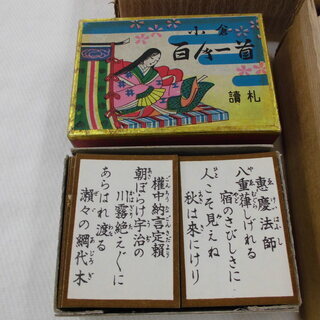 小倉
百人一首
讀札
惠慶法師
八重葎しげれる
宿のさびしきに
人こそ見えね
秋は来にけり
權中納言定頼
朝ぼらけ宇治の
川霧絶えぐに
あらはれ渡る
瀬々の網代木